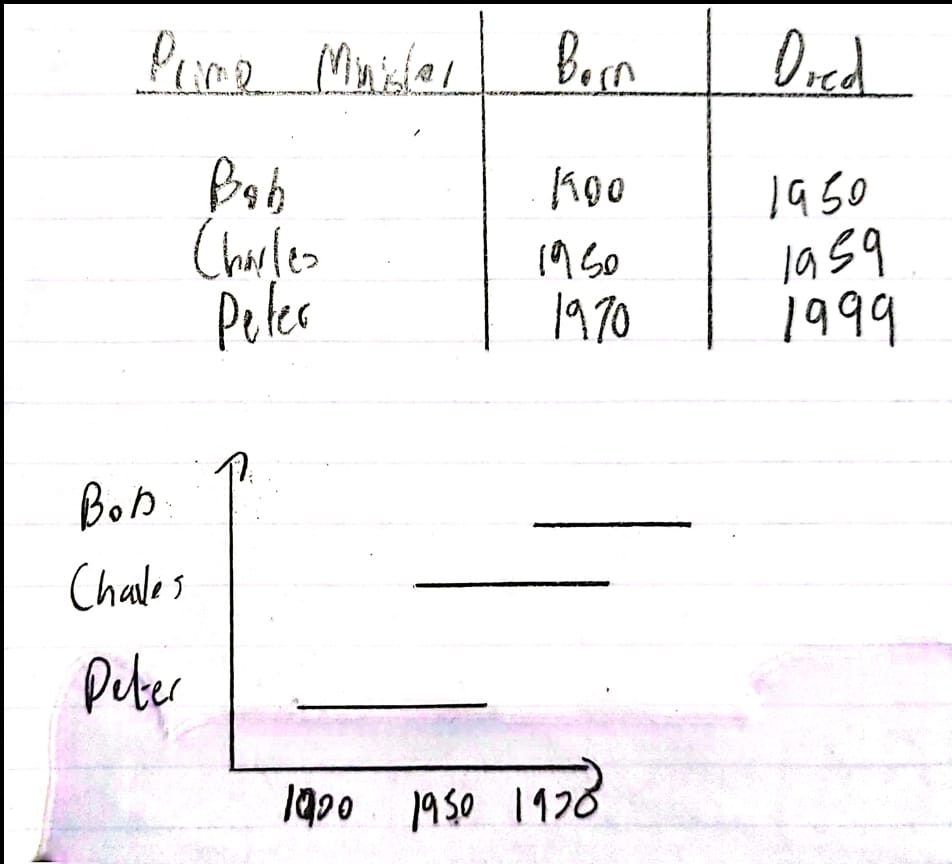 Prime Minister Born Died
Bob 1900 1950
Charles 1950 1959
Peter 1970 1999
Bob
Charles
Peter
1900 1950 1970